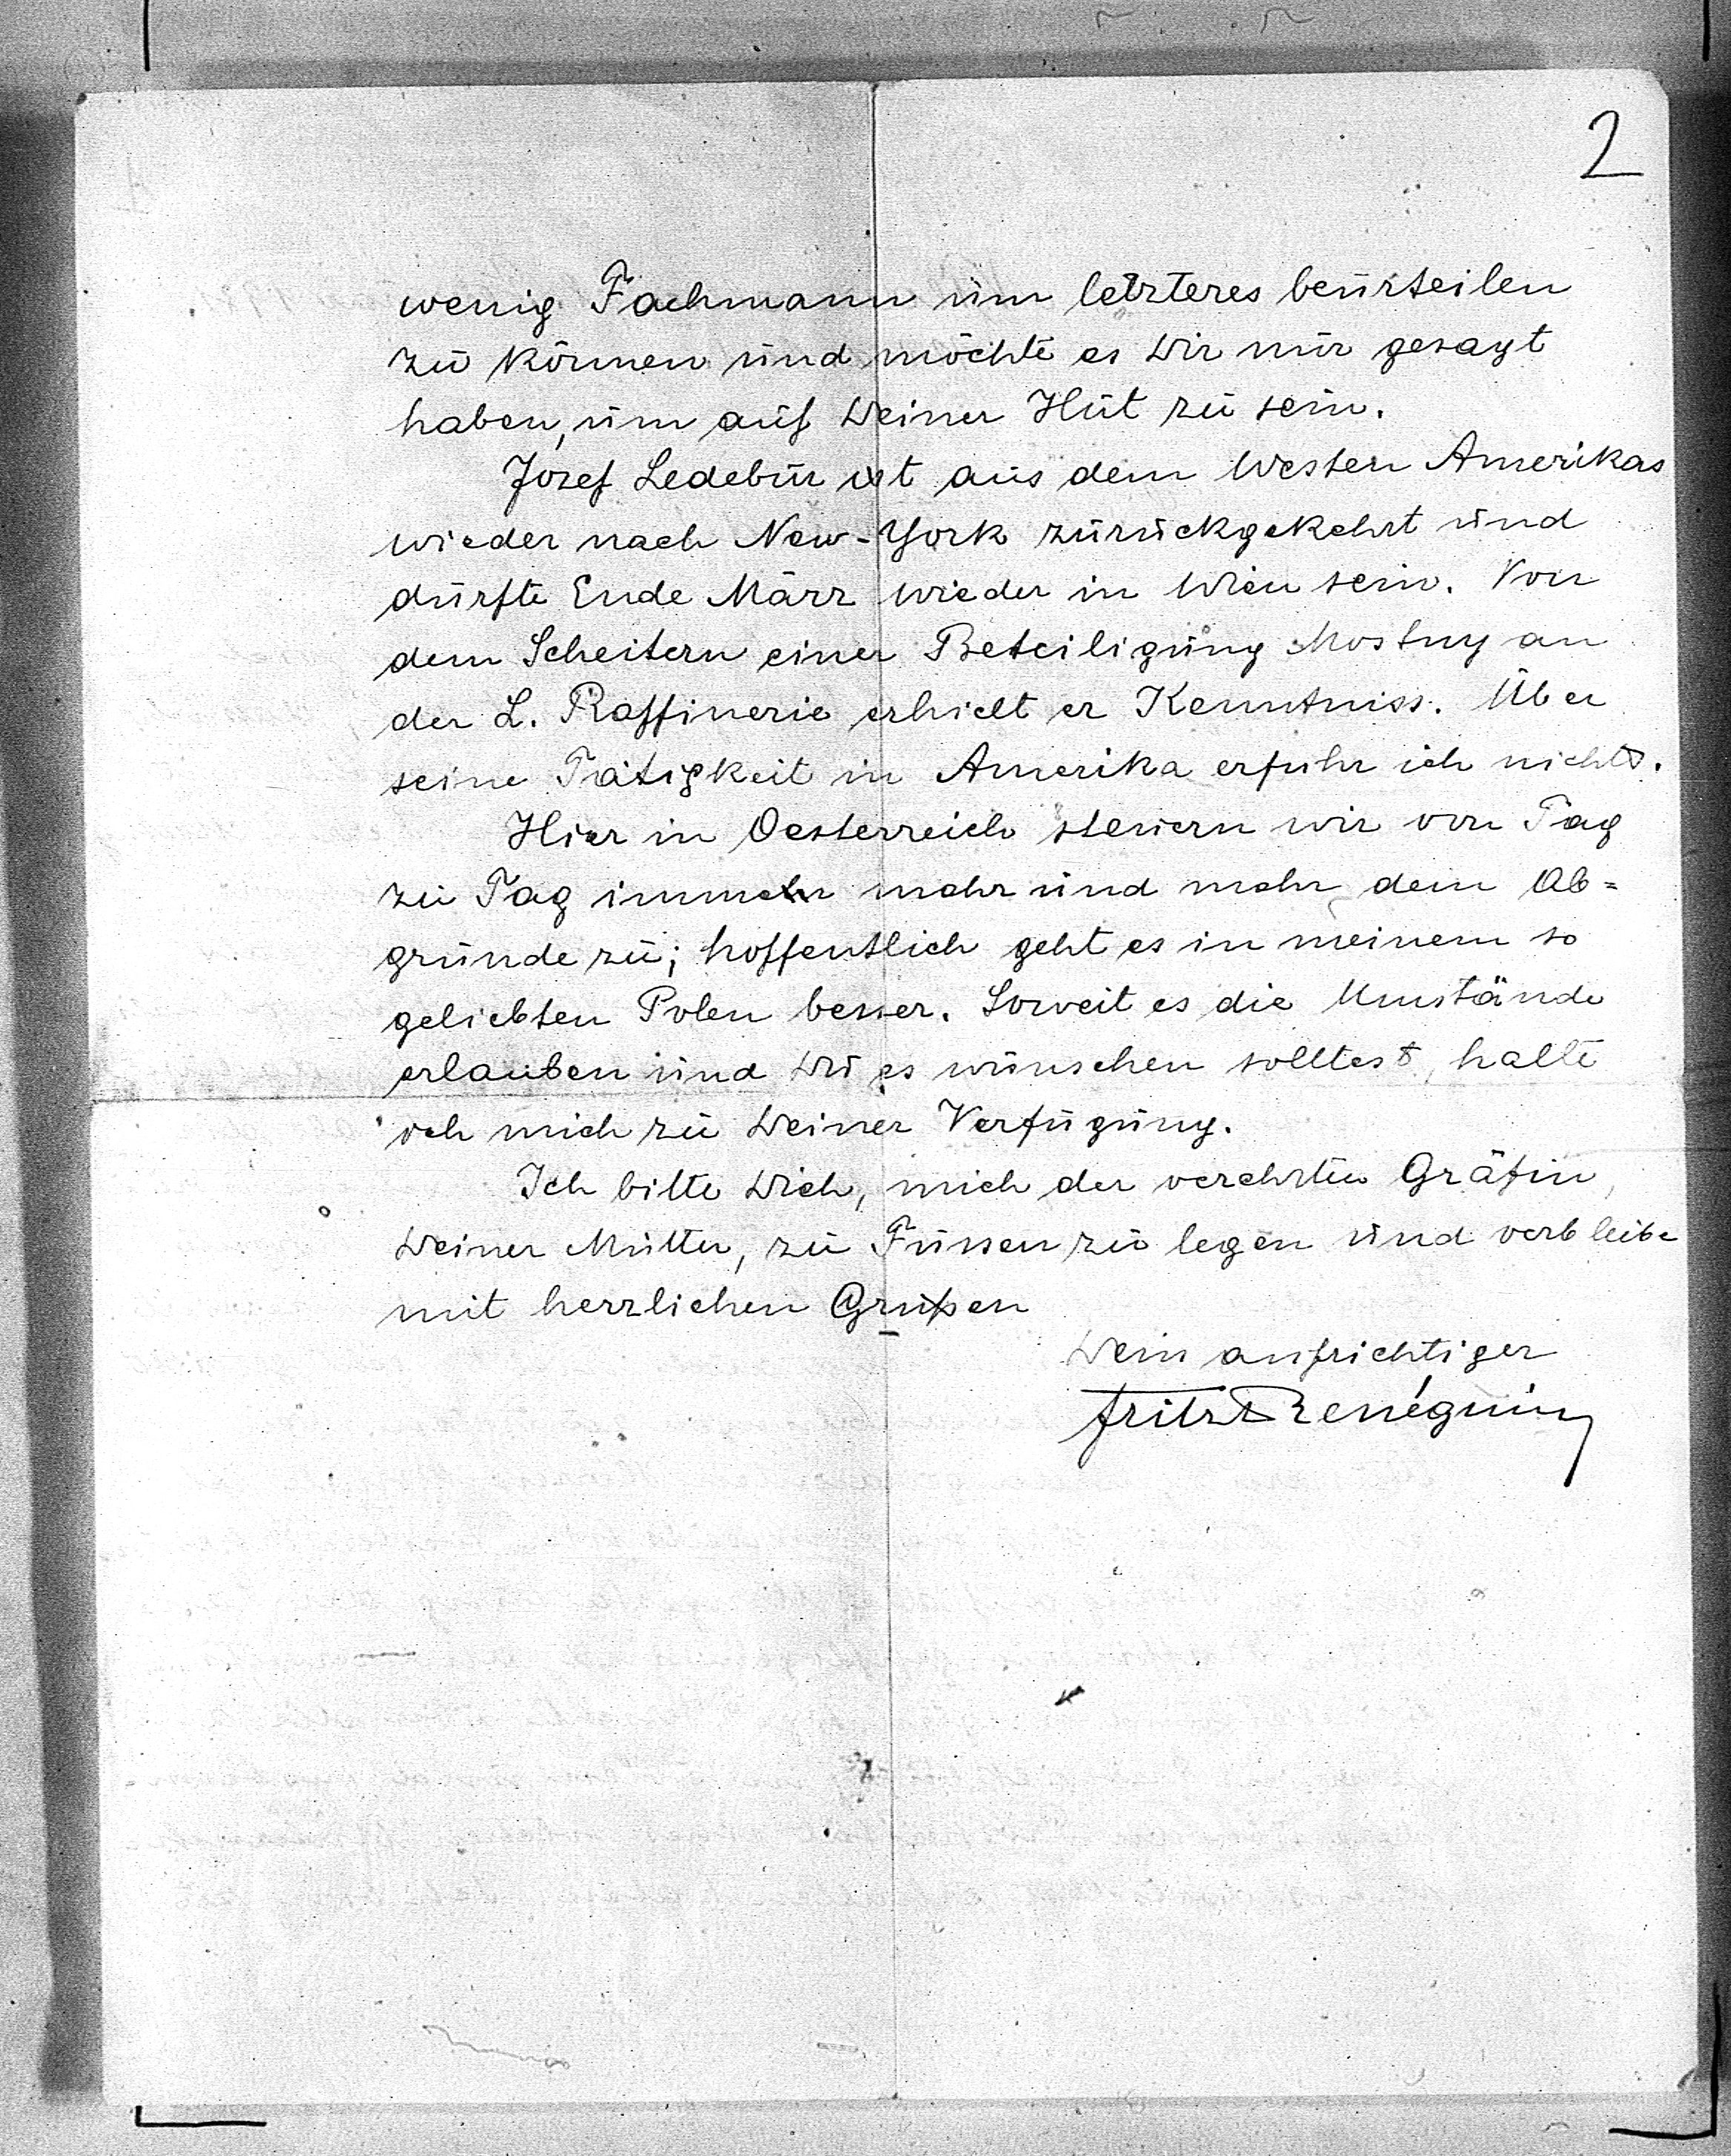 2
wenig Fachmann um letzteres beurteilen
zu können und möchte es Dir nur gesagt
haben, um auf Deiner Hut zu sein.
Josef Ledebur ist aus dem Westen Amerikas
wieder nach New-York zurückgekehrt und
dürfte Ende März wieder in Wien sein. Von
dem Scheitern einer Beteiligung Mostny an
der L. Raffinerie erhielt er Kenntniss. Über
seine Tätigkeit in Amerika erfuhr ich nichts.
Hier in Oesterreich steuern wir von Tag
zu Tag immer mehr und mehr dem Ab=
grunde zu; hoffentlich geht es in meinem so
geliebten Polen besser. Soweit es die Umstände
erlauben und Du es wünschen solltest, halte
ich mich zu Deiner Verfügung.
Ich bitte Dich, mich der verehrten Gräfin,
Deiner Mutter, zu Füssen zu legen und verbleibe
mit herzlichen Grüßen
Dein aufrichtiger
Fritz